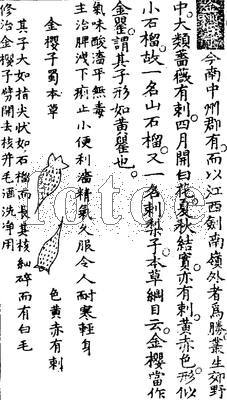 金櫻子
今南中州郡有。而以江西劍南嶺外者爲勝。叢生郊野
中。大類薔薇有刺。四月開白花。夏秋結實。亦有刺。黃赤色。形似
小石榴。故一名山石榴。又一名刺梨子。本草綱目云。金櫻當作
金罌。謂其子形如黃罌也。
氣味酸濇平無毒
主治脾洩下痢止小便利濇精氣久服令人耐寒輕身
金櫻子蜀本草
色黃赤有刺
其子大如指尖狀如石榴而長其核細碎而有白毛
修治金櫻子劈開去核并毛酒洗淨用
fotoe